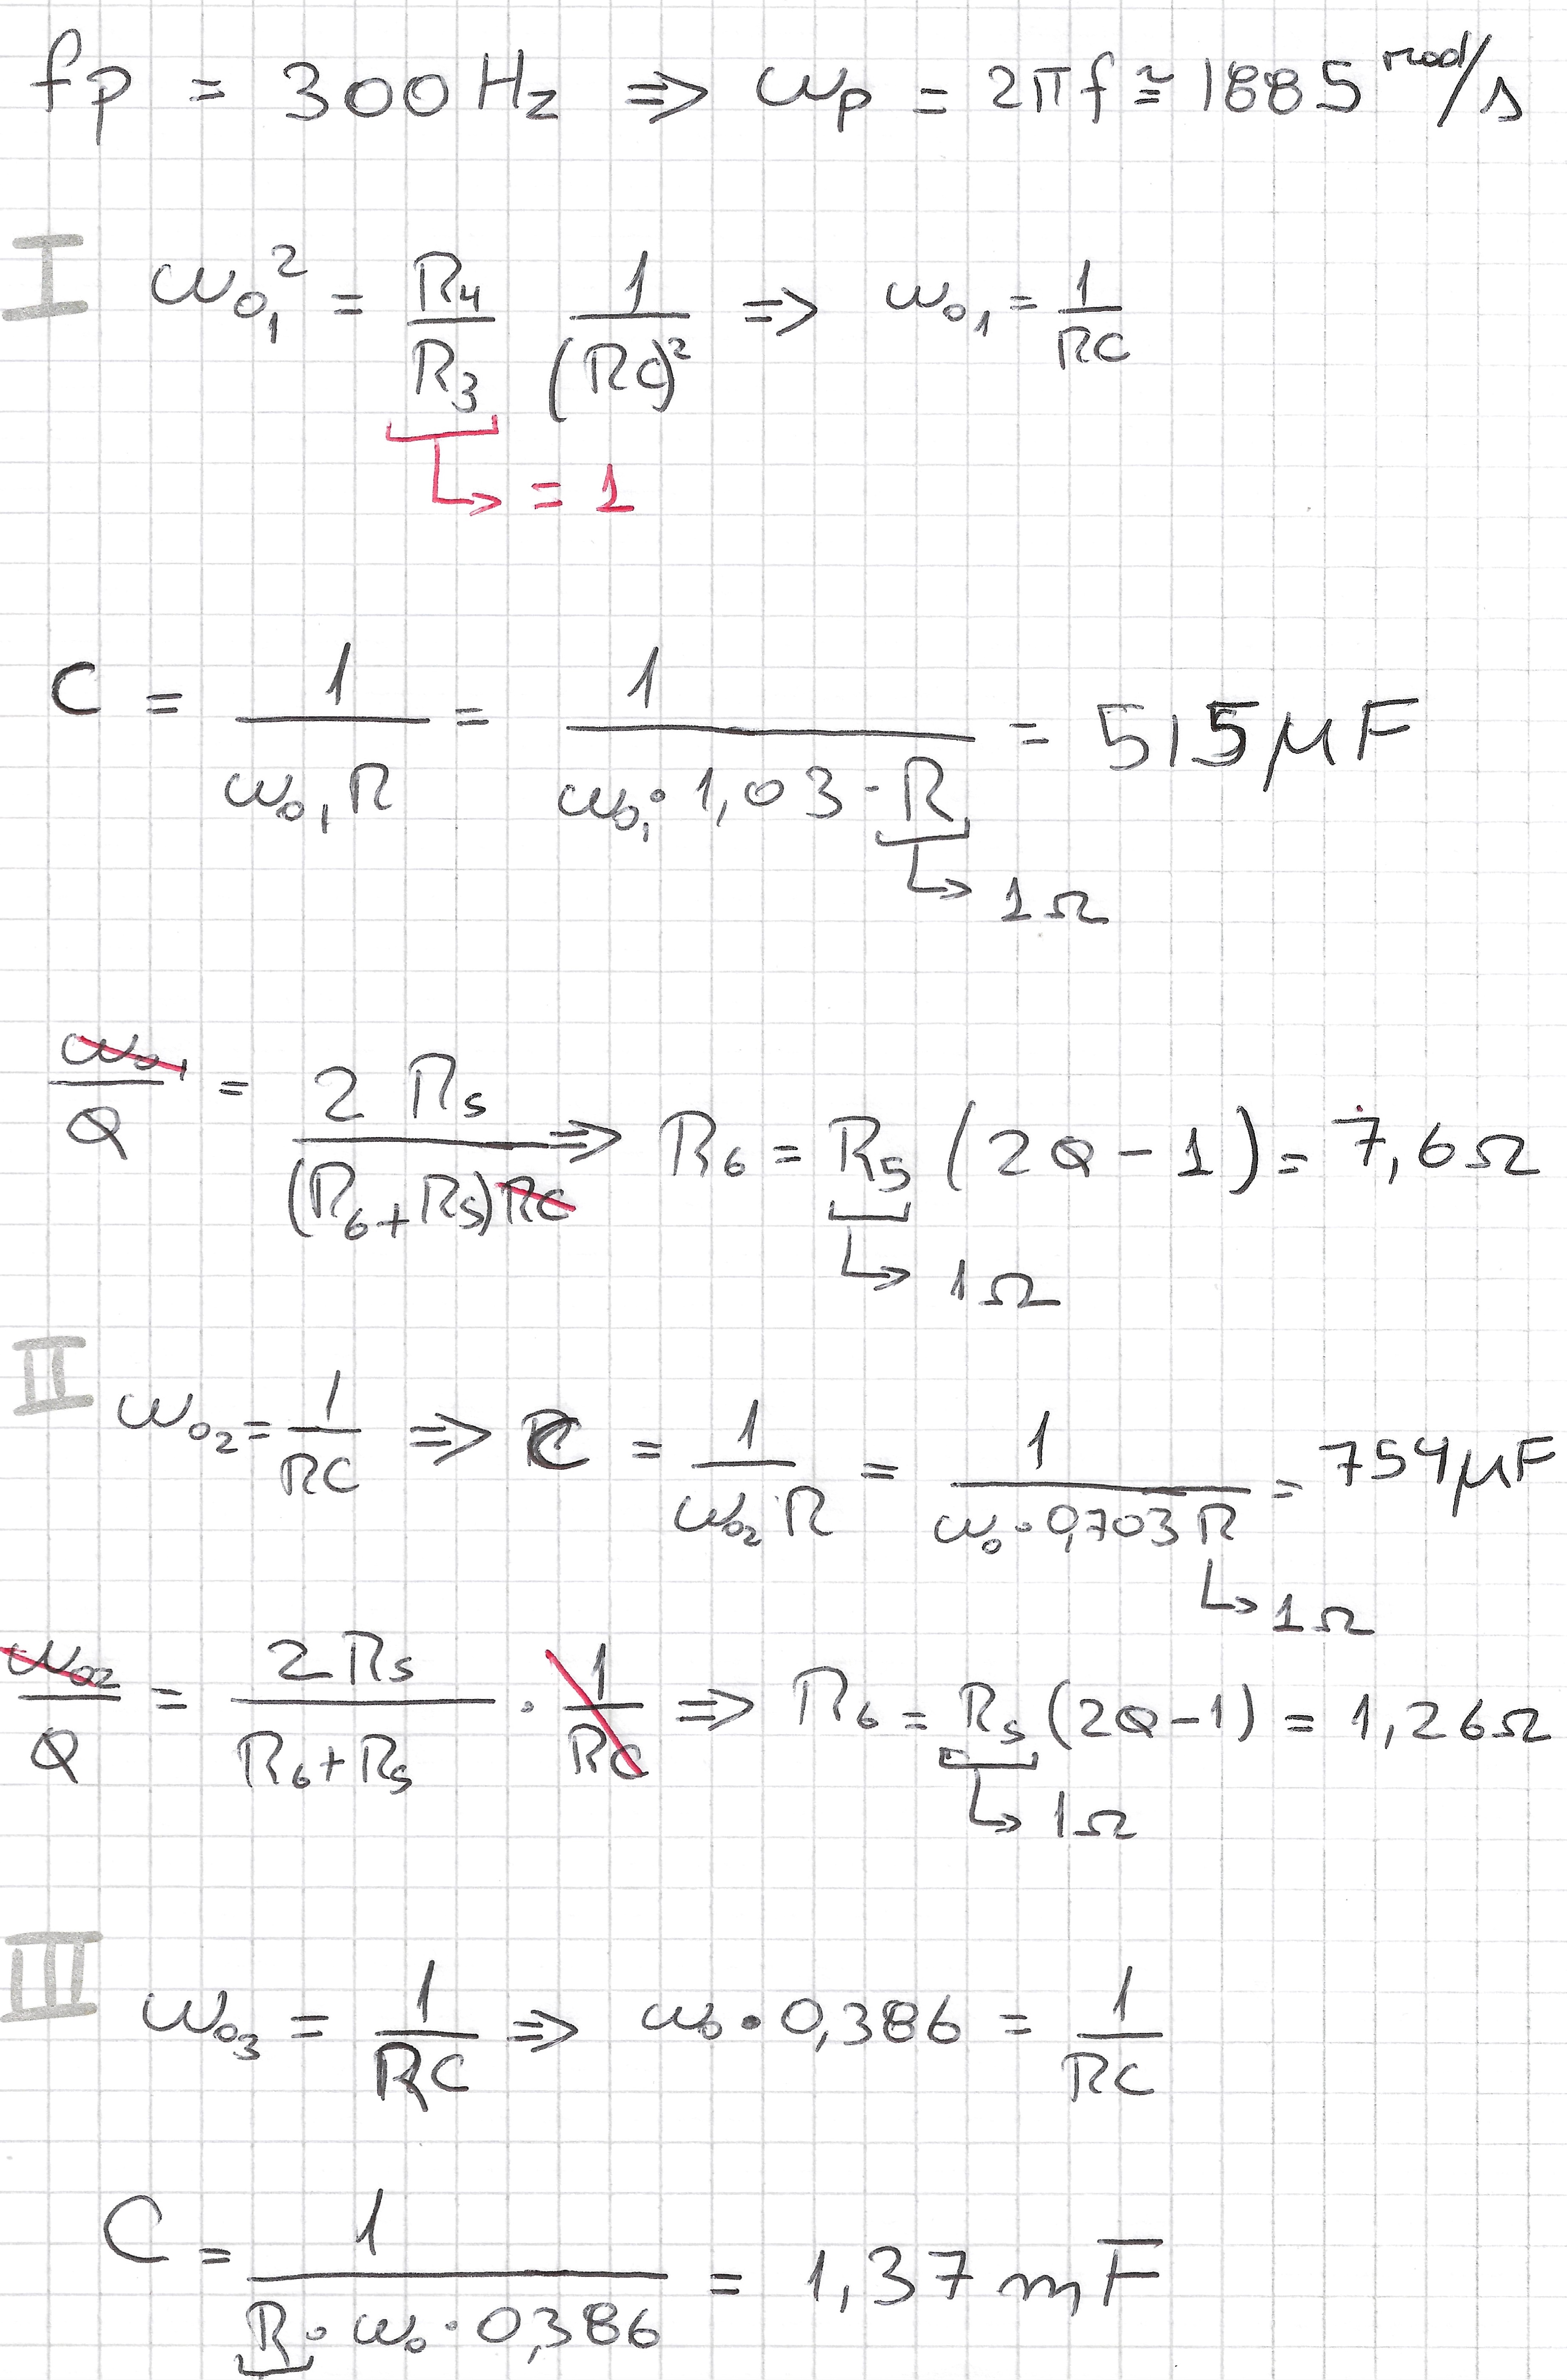 fp = 300 Hz ⇒ ωp = 2πf ≅ 1885 rad/s
I ω₀₁² = R4/R3 1/(RC)² ⇒ ω₀₁ = 1/RC
↳ = 1
C = 1/(ω₀₁R) = 1/(ω₀₁ · 1,03 · R) = 515 μF
↳ 1Ω
ω₀₁/Q = 2 R5/((R6+R5)RC) ⇒ R6 = R5 (2Q-1) = 7,6Ω
↳ 1Ω
II ω₀₂ = 1/RC ⇒ C = 1/(ω₀₂R) = 1/(ω₀ · 0,703 R) = 754 μF
↳ 1Ω
ω₀₂/Q = 2 R5/(R6+R5) · 1/RC ⇒ R6 = R5 (2Q-1) = 1,26Ω
↳ 1Ω
III ω₀₃ = 1/RC ⇒ ω₀ · 0,386 = 1/RC
C = 1/(R · ω₀ · 0,386) = 1,37 mF